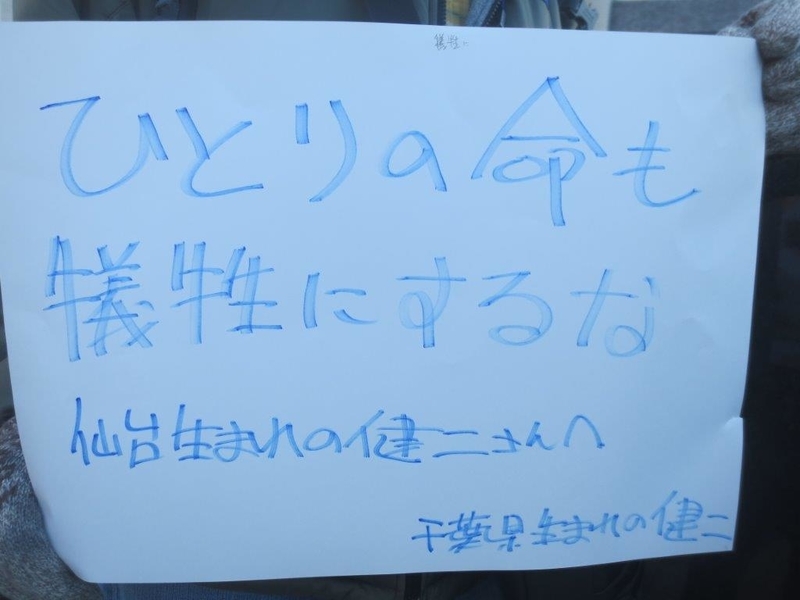 犠牲に
ひとりの命も
犠牲にするな
仙台生まれの健二さんへ
千葉県生まれの健二